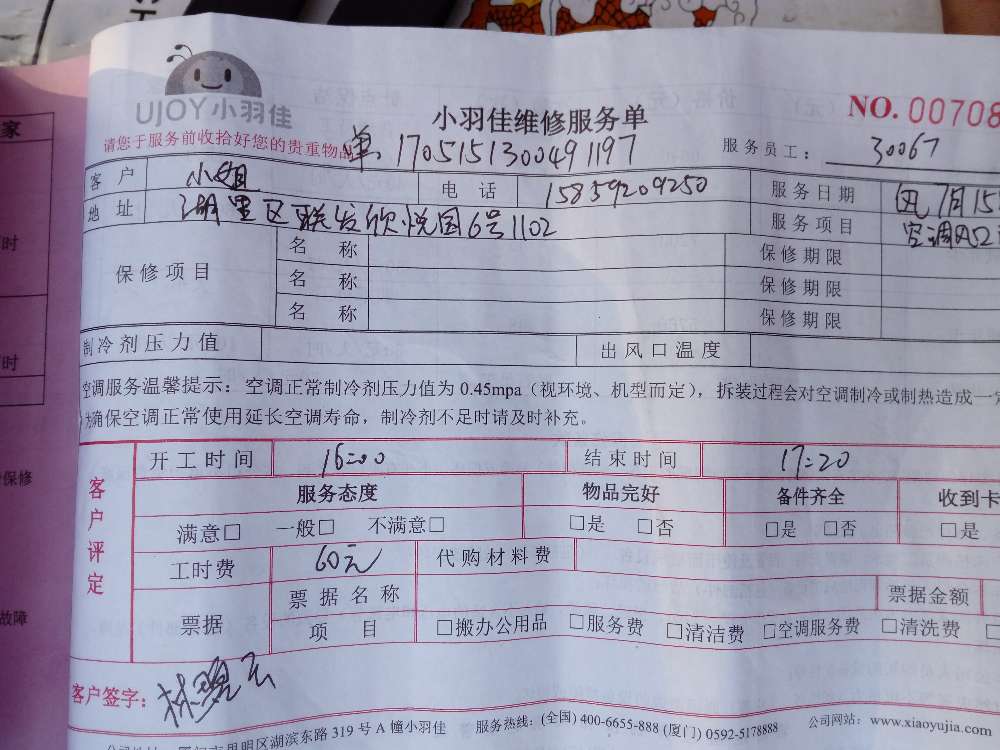 家
UJOY小羽佳
小羽佳维修服务单
NO. 00708
请您于服务前收拾好您的贵重物品
单: 170515130049 1197
服务员工: 30067
客户 小姐 电话 15859209250 服务日期 7月15
地址 湖里区联发欣悦园6号1102 服务项目 空调风口
保修项目
名称 保修期限
名称 保修期限
名称 保修期限
制冷剂压力值 出风口温度
空调服务温馨提示：空调正常制冷剂压力值为 0.45mpa（视环境、机型而定），拆装过程会对空调制冷或制热造成一
为确保空调正常使用延长空调寿命，制冷剂不足时请及时补充。
客户评定
开工时间 16:00 结束时间 17:20
服务态度 物品完好 备件齐全 收到卡
满意□ 一般□ 不满意□ □是 □否 □是 □否 □是
工时费 60元 代购材料费
票据 票据名称 票据金额
项目 □搬办公用品 □服务费 □清洁费 □空调服务费 □清洗费 □
客户签字：
湖滨东路 319 号 A 幢小羽佳 服务热线：(全国) 400-6655-888 (厦门) 0592-5178888 公司网站：www.xiaoyujia.com
时
时
保修
故障